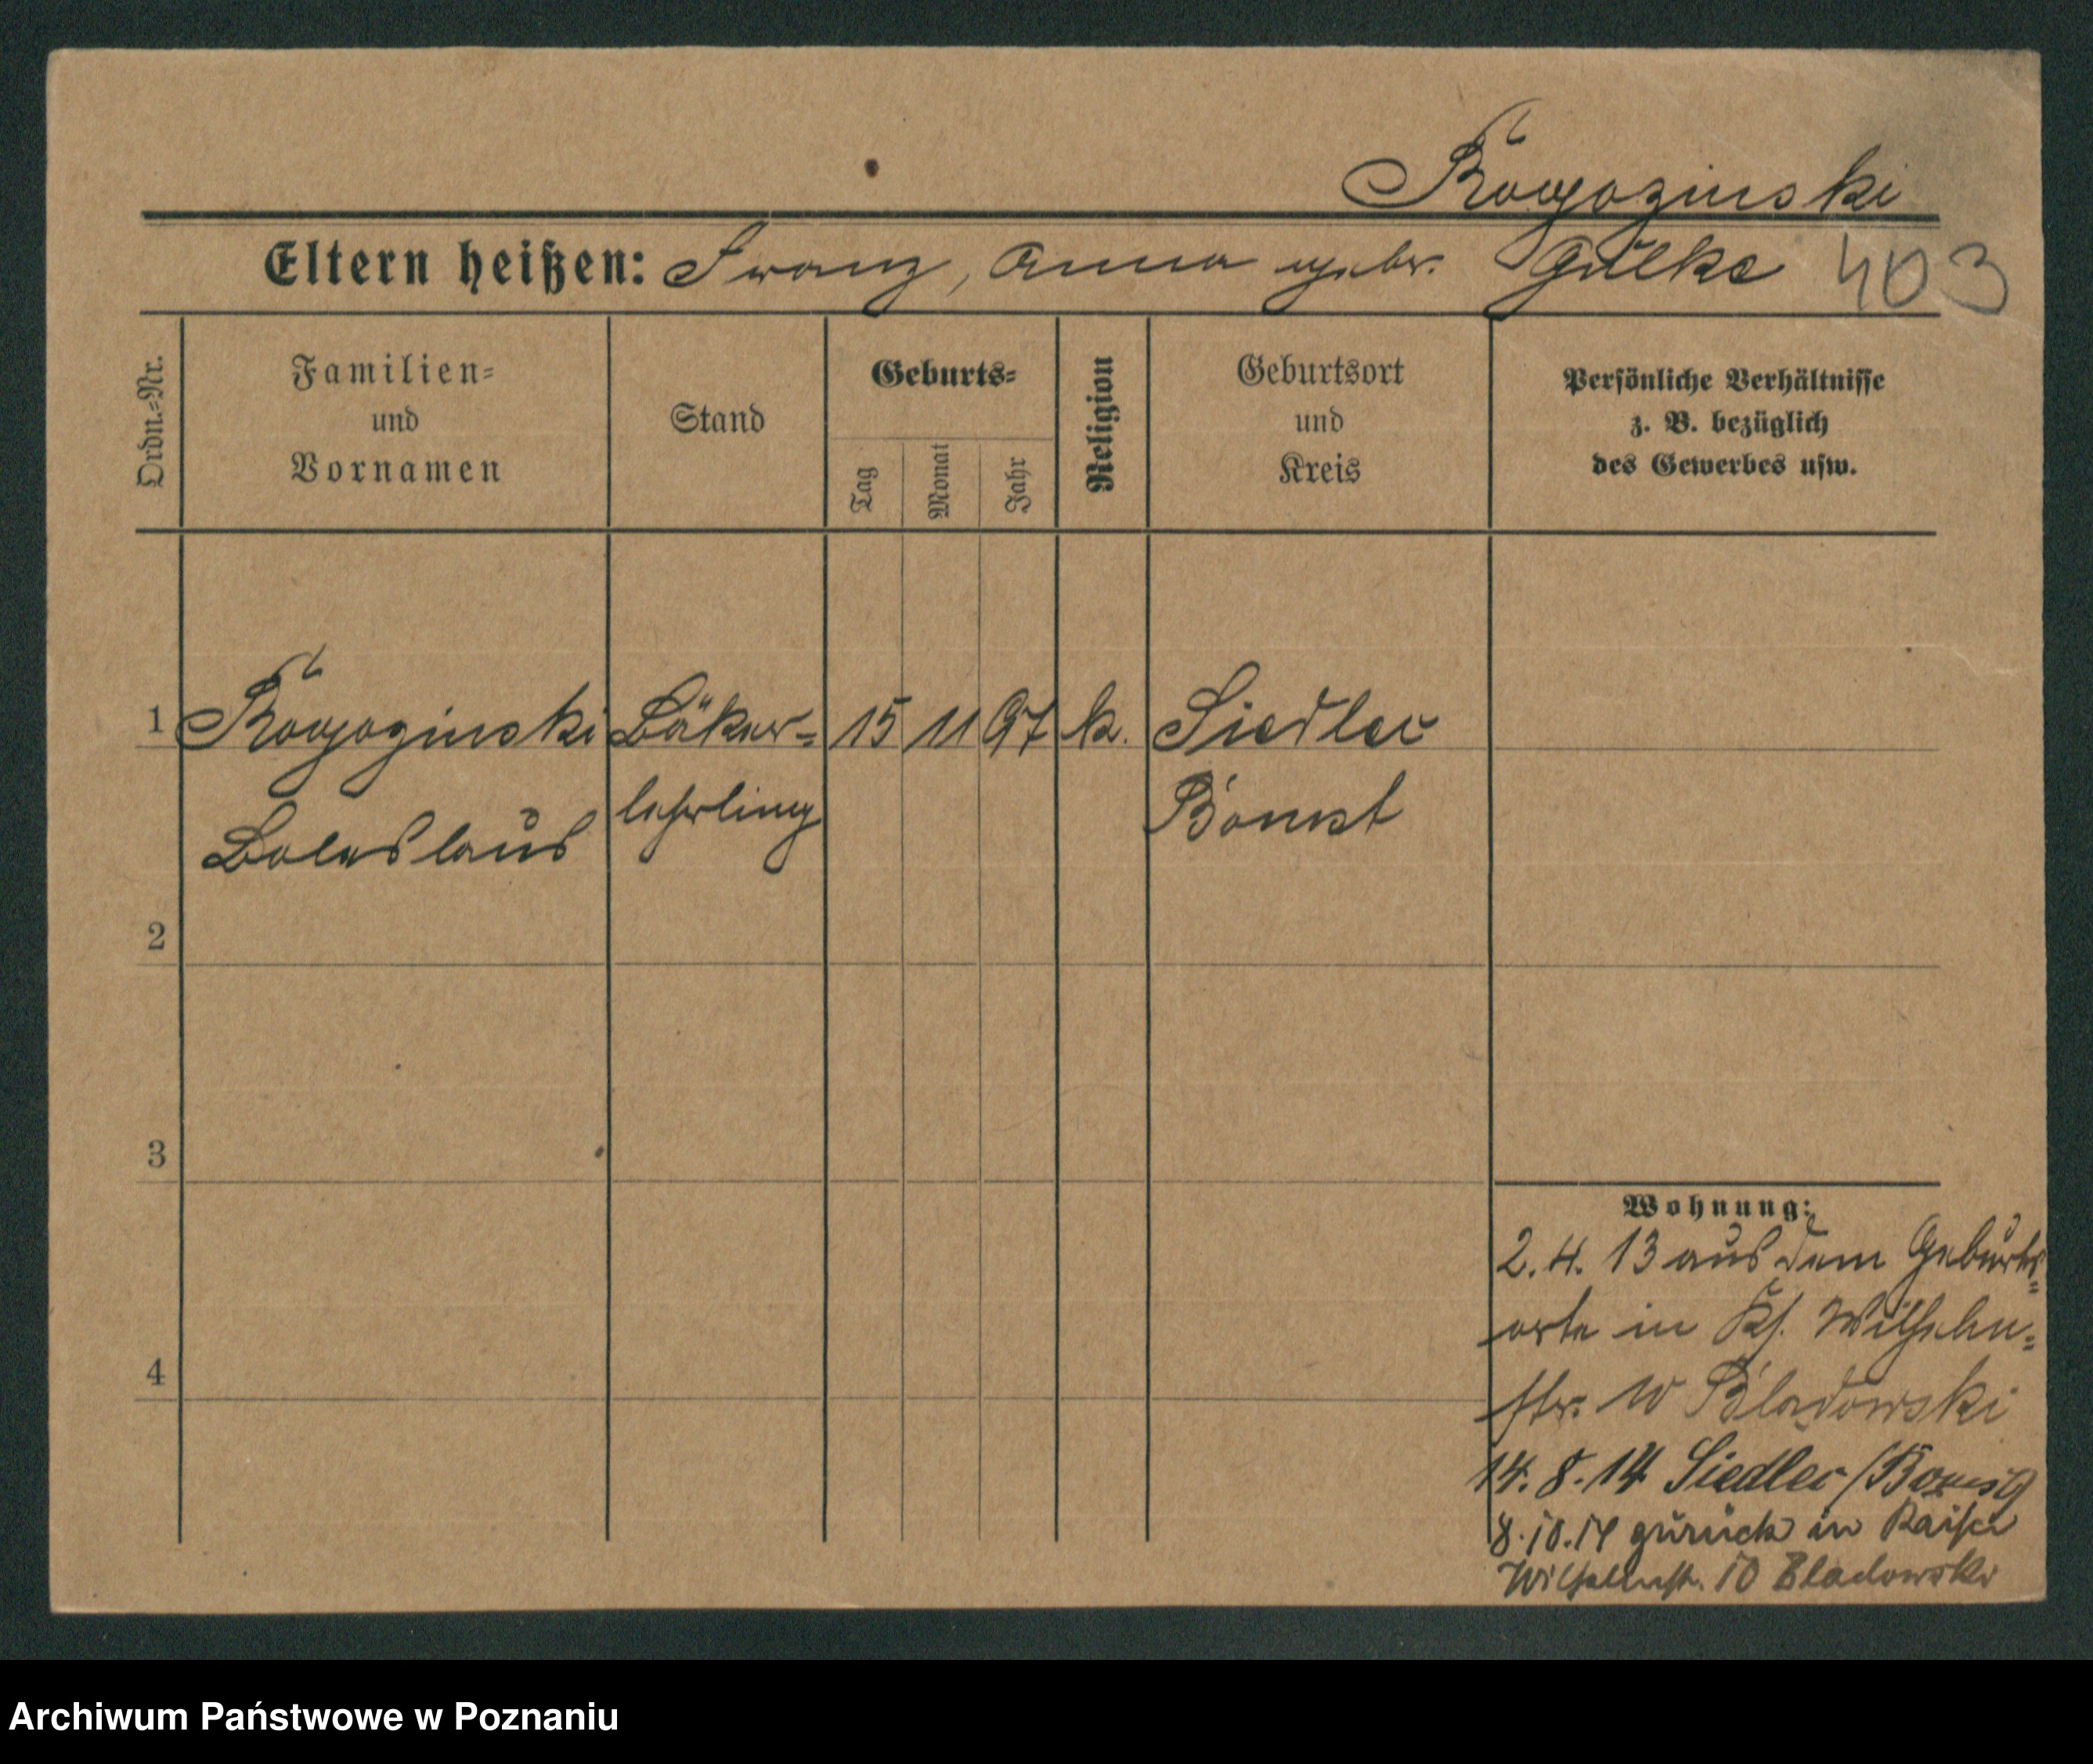 Rogozinski
Eltern heißen: Franz, Anna gebr. Gülke 403
Ordn.=Nr.
Familien=
und
Vornamen
Stand
Geburts=
Tag
Monat
Jahr
Religion
Geburtsort
und
Kreis
Persönliche Verhältnisse
z. B. bezüglich
des Gewerbes usw.
1 Rogozinski Bäker= 15 11 97 k. Siedlec
Boleslaus lehrling Bomst
2
3
4
Wohnung:
2. 4. 13 aus dem Geburts=
orte in Ks. Wilhelm=
str. 10 Bladowski
14. 8. 14 Siedlec /Bomst
8. 10. 14 zurück in Kaiser
Wilhelmstr. 10 Bladowski
Archiwum Państwowe w Poznaniu